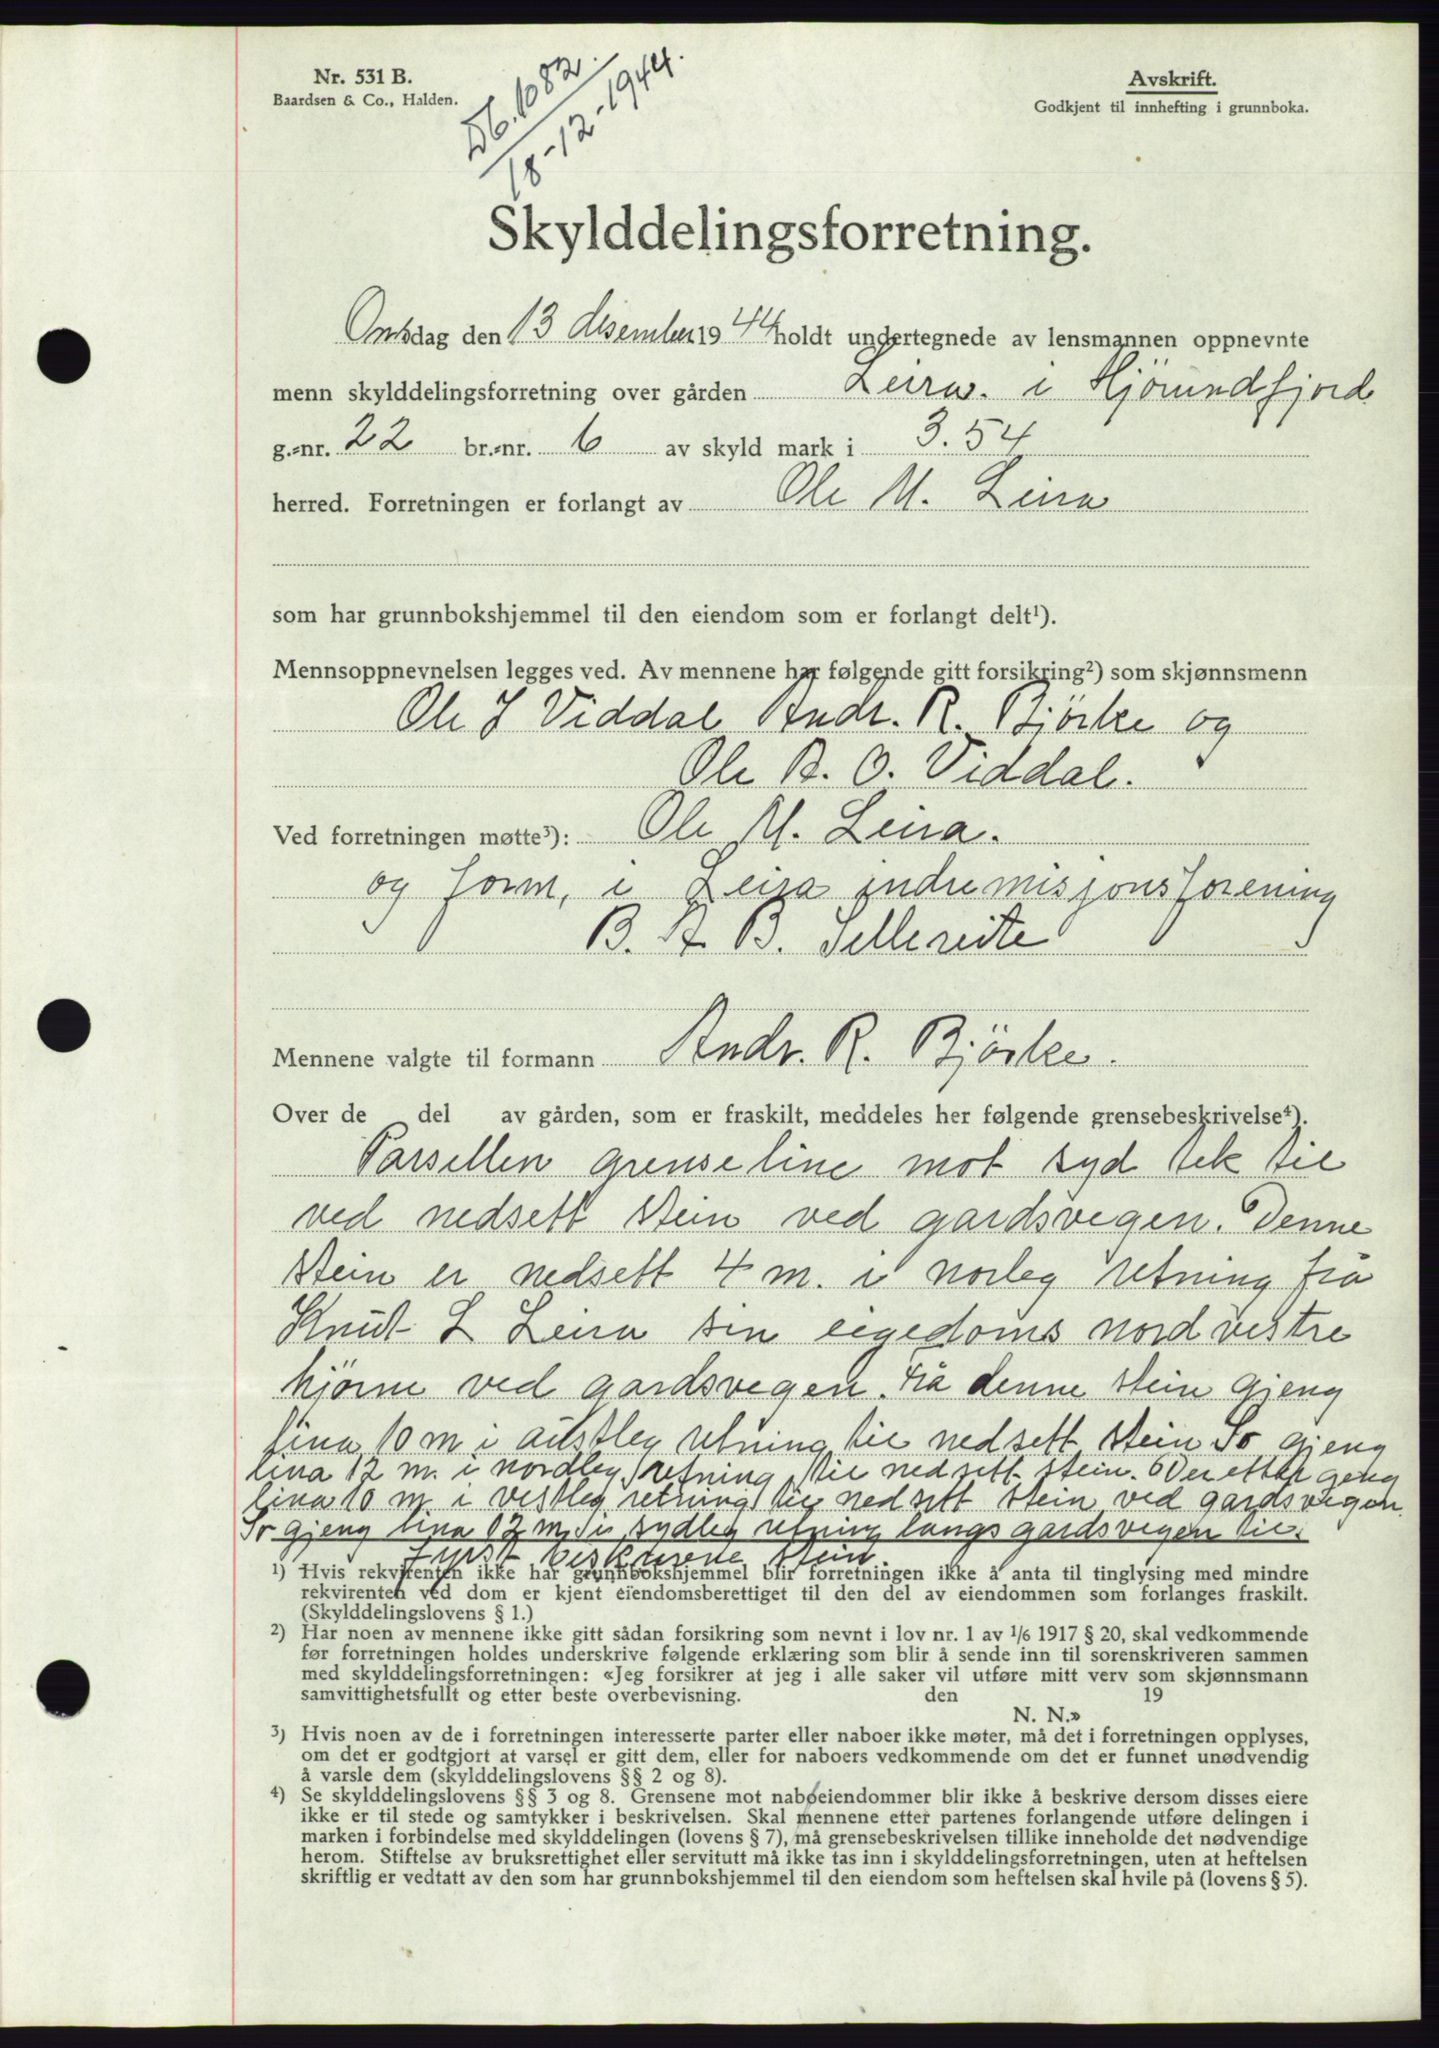 Nr. 531 B.
Baardsen & Co., Halden.
Db. 1082.
18-12-1944.
Avskrift.
Godkjent til innhefting i grunnboka.
Skylddelingsforretning.
Onsdag den 13 desember 1944 holdt undertegnede av lensmannen oppnevnte
menn skylddelingsforretning over gården Leira. i Hjørundfjord
g.-nr. 22 br.-nr. 6 av skyld mark i 3.54
herred. Forretningen er forlangt av Ole M. Leira
som har grunnbokshjemmel til den eiendom som er forlangt delt¹).
Mennsoppnevnelsen legges ved. Av mennene har følgende gitt forsikring²) som skjønnsmenn
Ole J Viddal Andr. R. Bjørke og
Ole A. O. Viddal.
Ved forretningen møtte³): Ole M. Leira.
og form, i Leira indremisjonsforening
B. A. B. Sellereite
Mennene valgte til formann Andr. R. Bjørke.
Over de del av gården, som er fraskilt, meddeles her følgende grensebeskrivelse⁴).
Parsellen grenseline mot syd tek til
ved nedsett stein ved gardsvegen. Denne
stein er nedsett 4 m. i norleg retning frå
Knut L Leira sin eigedoms nordvestre
hjørne ved gardsvegen. Frå denne stein gjeng
lina 10 m i austleg retning til nedsett stein So gjeng
lina 12 m. i nordleg retning til nedsett stein. Deretter geng
lina 10 m i vestleg retning til nedsett stein ved gardsvegen.
So gjeng lina 12 m i sydleg retning langs gardsvegen til
fyrst beskrevne stein.
¹) Hvis rekvirenten ikke har grunnbokshjemmel blir forretningen ikke å anta til tinglysing med mindre
rekvirenten ved dom er kjent eiendomsberettiget til den del av eiendommen som forlanges fraskilt.
(Skylddelingslovens § 1.)
²) Har noen av mennene ikke gitt sådan forsikring som nevnt i lov nr. 1 av 1/6 1917 § 20, skal vedkommende
før forretningen holdes underskrive følgende erklæring som blir å sende inn til sorenskriveren sammen
med skylddelingsforretningen: «Jeg forsikrer at jeg i alle saker vil utføre mitt verv som skjønnsmann
samvittighetsfullt og etter beste overbevisning. den 19
N. N.»
³) Hvis noen av de i forretningen interesserte parter eller naboer ikke møter, må det i forretningen opplyses,
om det er godtgjort at varsel er gitt dem, eller for naboers vedkommende om det er funnet unødvendig
å varsle dem (skylddelingslovens §§ 2 og 8).
⁴) Se skylddelingslovens §§ 3 og 8. Grensene mot naboeiendommer blir ikke å beskrive dersom disses eiere
ikke er til stede og samtykker i beskrivelsen. Skal mennene etter partenes forlangende utføre delingen i
marken i forbindelse med skylddelingen (lovens § 7), må grensebeskrivelsen tillike inneholde det nødvendige
herom. Stiftelse av bruksrettighet eller servitutt må ikke tas inn i skylddelingsforretningen, uten at heftelsen
skriftlig er vedtatt av den som har grunnbokshjemmel til den eiendom som heftelsen skal hvile på (lovens § 5).